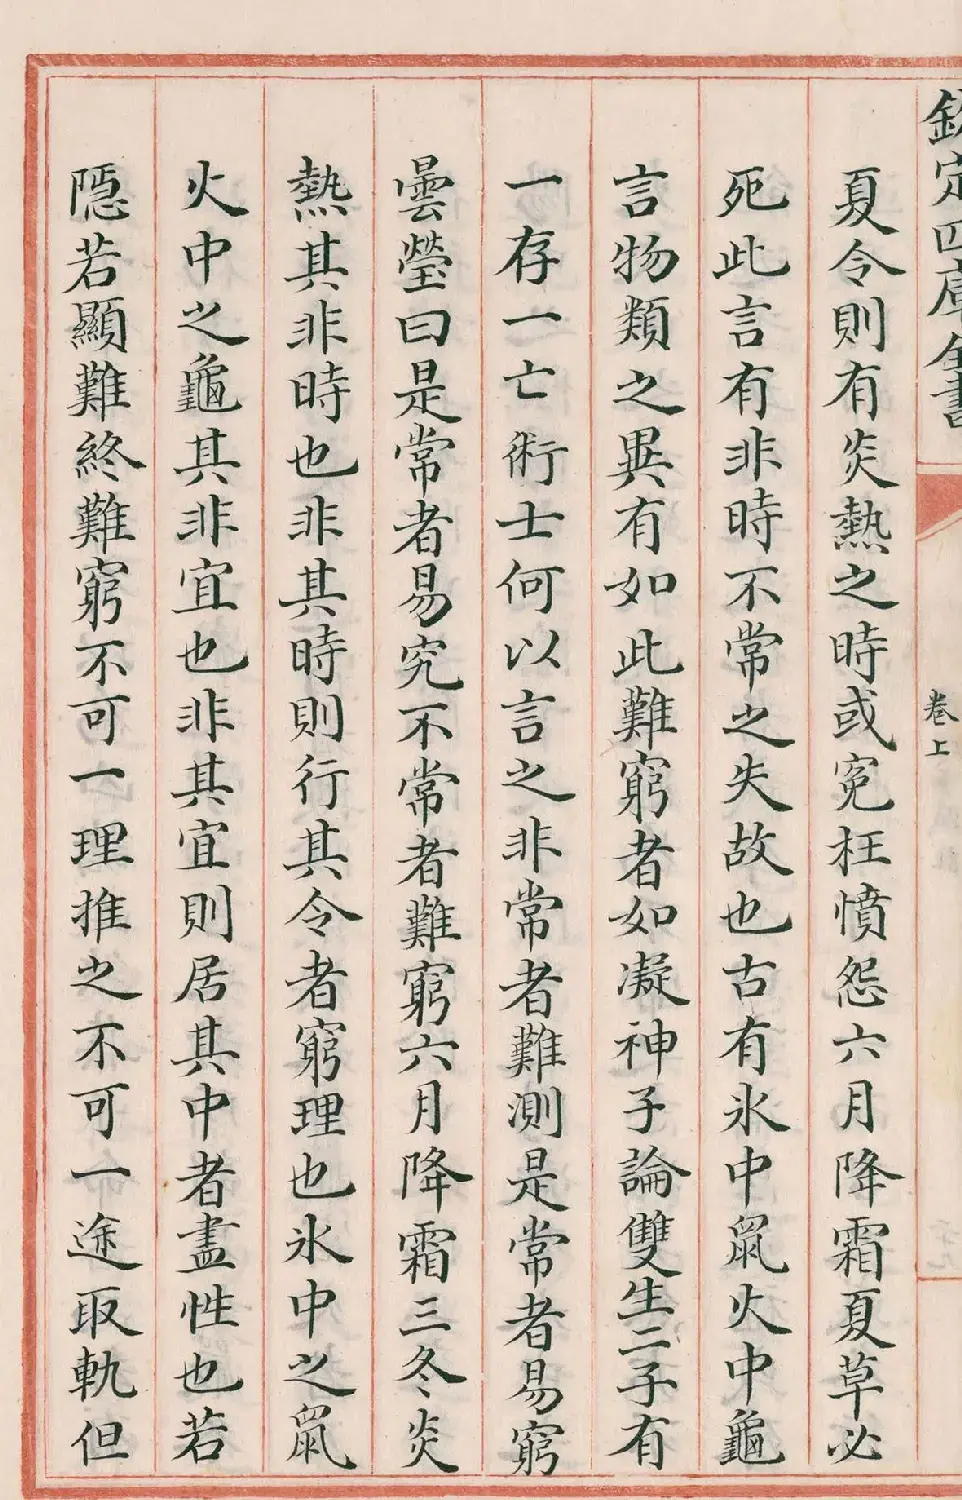 欽定四庫全書
卷上
夏令則有炎熱之時或寃枉憤怨六月降霜夏草必
死此言有非時不常之失故也古有氷中鼠火中龜
言物類之異有如此難窮者如凝神子論雙生二子有
一存一亡術士何以言之非常者難測是常者易窮
曇瑩曰是常者易究不常者難窮六月降霜三冬炎
熱其非時也非其時則行其令者窮理也氷中之鼠
火中之龜其非宜也非其宜則居其中者盡性也若
隱若顯難終難窮不可一理推之不可一途取軌但